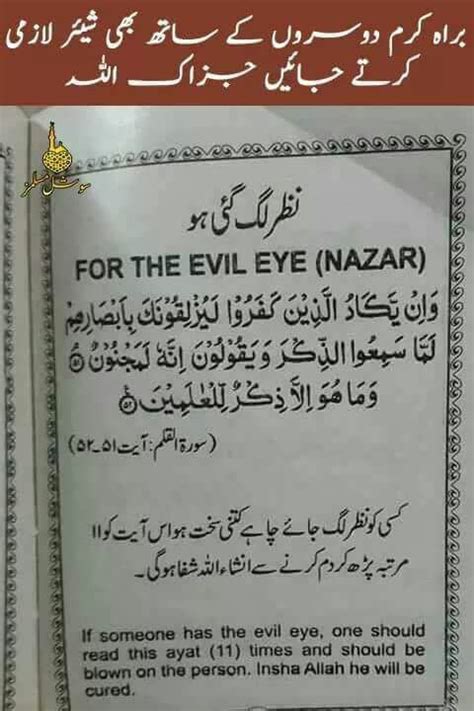 براہ کرم دوسروں کے ساتھ بھی شیئر لازمی
کرتے جائیں جزاک اللہ
سوشل مسلمز
نظر لگ گئی ہو
FOR THE EVIL EYE (NAZAR)
وَاِنْ يَّكَادُ الَّذِيْنَ كَفَرُوْا لَيُزْلِقُوْنَكَ بِاَبْصَارِهِمْ
لَمَّا سَمِعُوا الذِّكْرَ وَيَقُوْلُوْنَ اِنَّهٗ لَمَجْنُوْنٌ ۵۱
وَمَا هُوَ اِلَّا ذِكْرٌ لِّلْعٰلَمِيْنَ ۵۲
(سورۃ القلم: آیت ۵۱۔۵۲)
کسی کو نظر لگ جائے چاہے کتنی سخت ہو اس آیت کو ۱۱
مرتبہ پڑھ کر دم کرنے سے انشاء اللہ شفا ہوگی۔
If someone has the evil eye, one should
read this ayat (11) times and should be
blown on the person. Insha Allah he will be
cured.